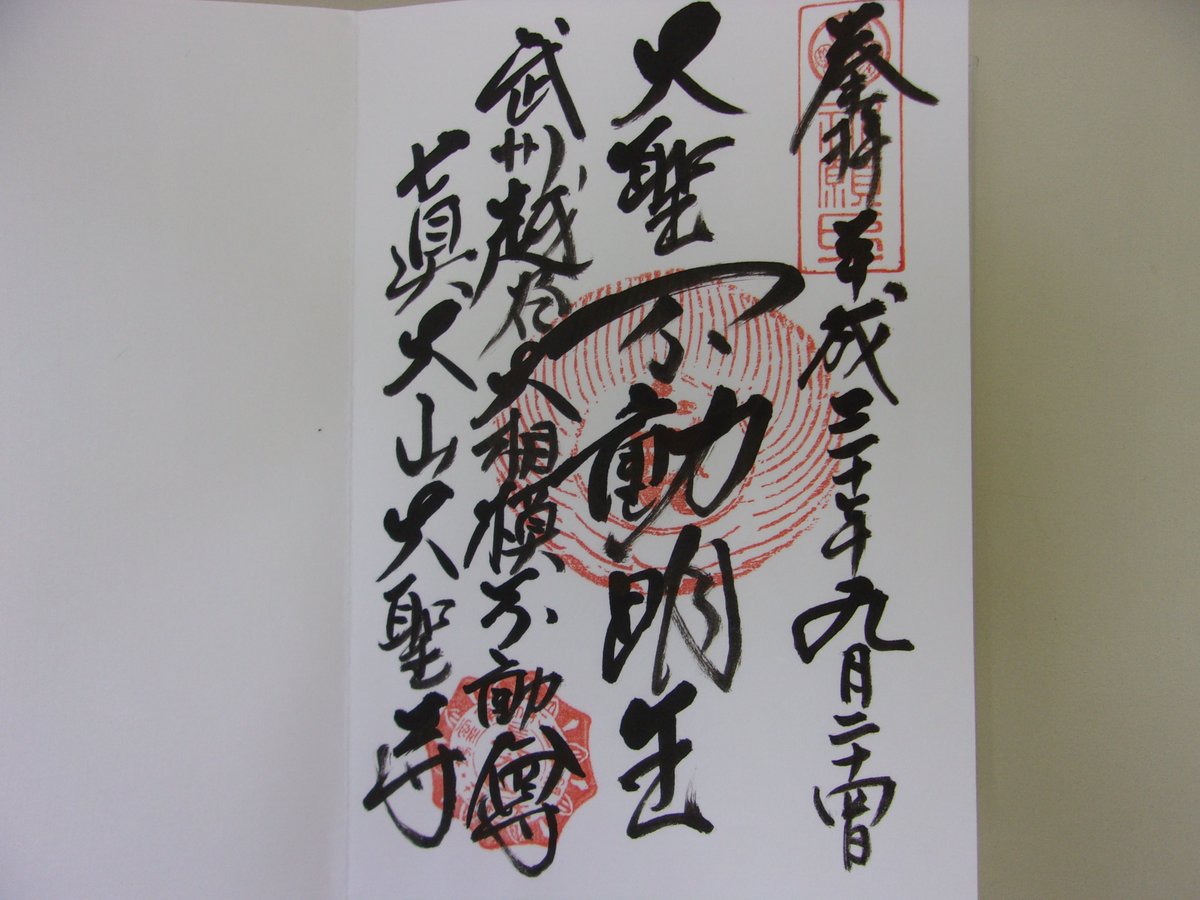 奉拝 平成三十年九月二十四日
大聖不動明王
武州越谷大相模不動尊
真大山大聖寺